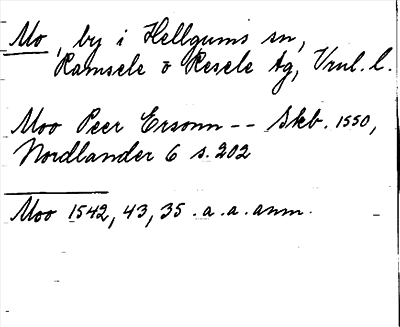 Mo, by i Hellgums sn,
Ramsele o Resele tg, Vnul. l.
Moo Peer Ersonn -- Skb. 1550,
Nordlander 6 s. 202
Moo 1542, 43, 35. a. a. anm.